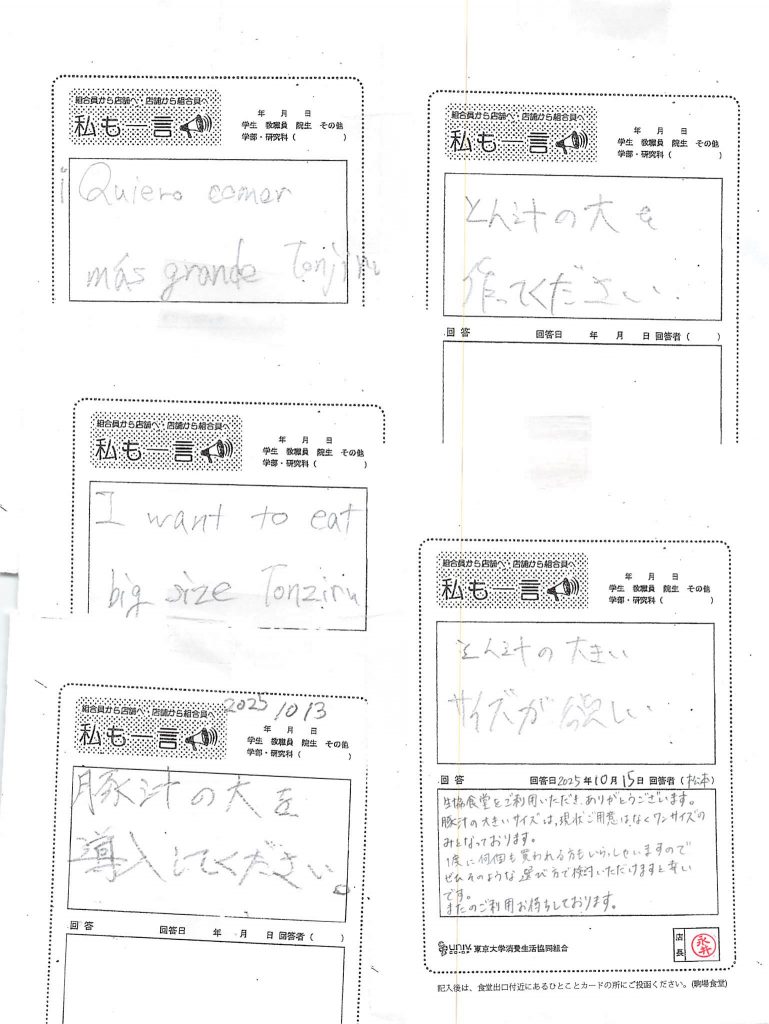 組合員から店舗へ・店舗から組合員へ
私も一言
年 月 日
学生 教職員 院生 その他
学部・研究科( )
¡Quiero comer
más grande Tonjiru
組合員から店舗へ・店舗から組合員へ
私も一言
年 月 日
学生 教職員 院生 その他
学部・研究科( )
I want to eat
big size Tonziru
組合員から店舗へ・店舗から組合員へ
私も一言
2025 10 13
年 月 日
学生 教職員 院生 その他
学部・研究科( )
豚汁の大を
導入してください。
回答 回答日 年 月 日 回答者( )
組合員から店舗へ・店舗から組合員へ
私も一言
年 月 日
学生 教職員 院生 その他
学部・研究科( )
とん汁の大を
作ってください.
回答 回答日 年 月 日 回答者( )
組合員から店舗へ・店舗から組合員へ
私も一言
年 月 日
学生 教職員 院生 その他
学部・研究科( )
とん汁の大きい
サイズが欲しい
回答 回答日2025年10月15日 回答者(松本)
生協食堂をご利用いただき、ありがとうございます。
豚汁の大きいサイズは、現状ご用意はなくワンサイズの
みとなっております。
1度に何個も買われる方もいらっしゃいますので
ぜひそのような選び方で検討いただけますと幸い
です。
またのご利用お待ちしております。
univ. CO-OP 東京大学消費生活協同組合
店長 永井
記入後は、食堂出口付近にあるひとことカードの所にご投函ください。(駒場食堂)